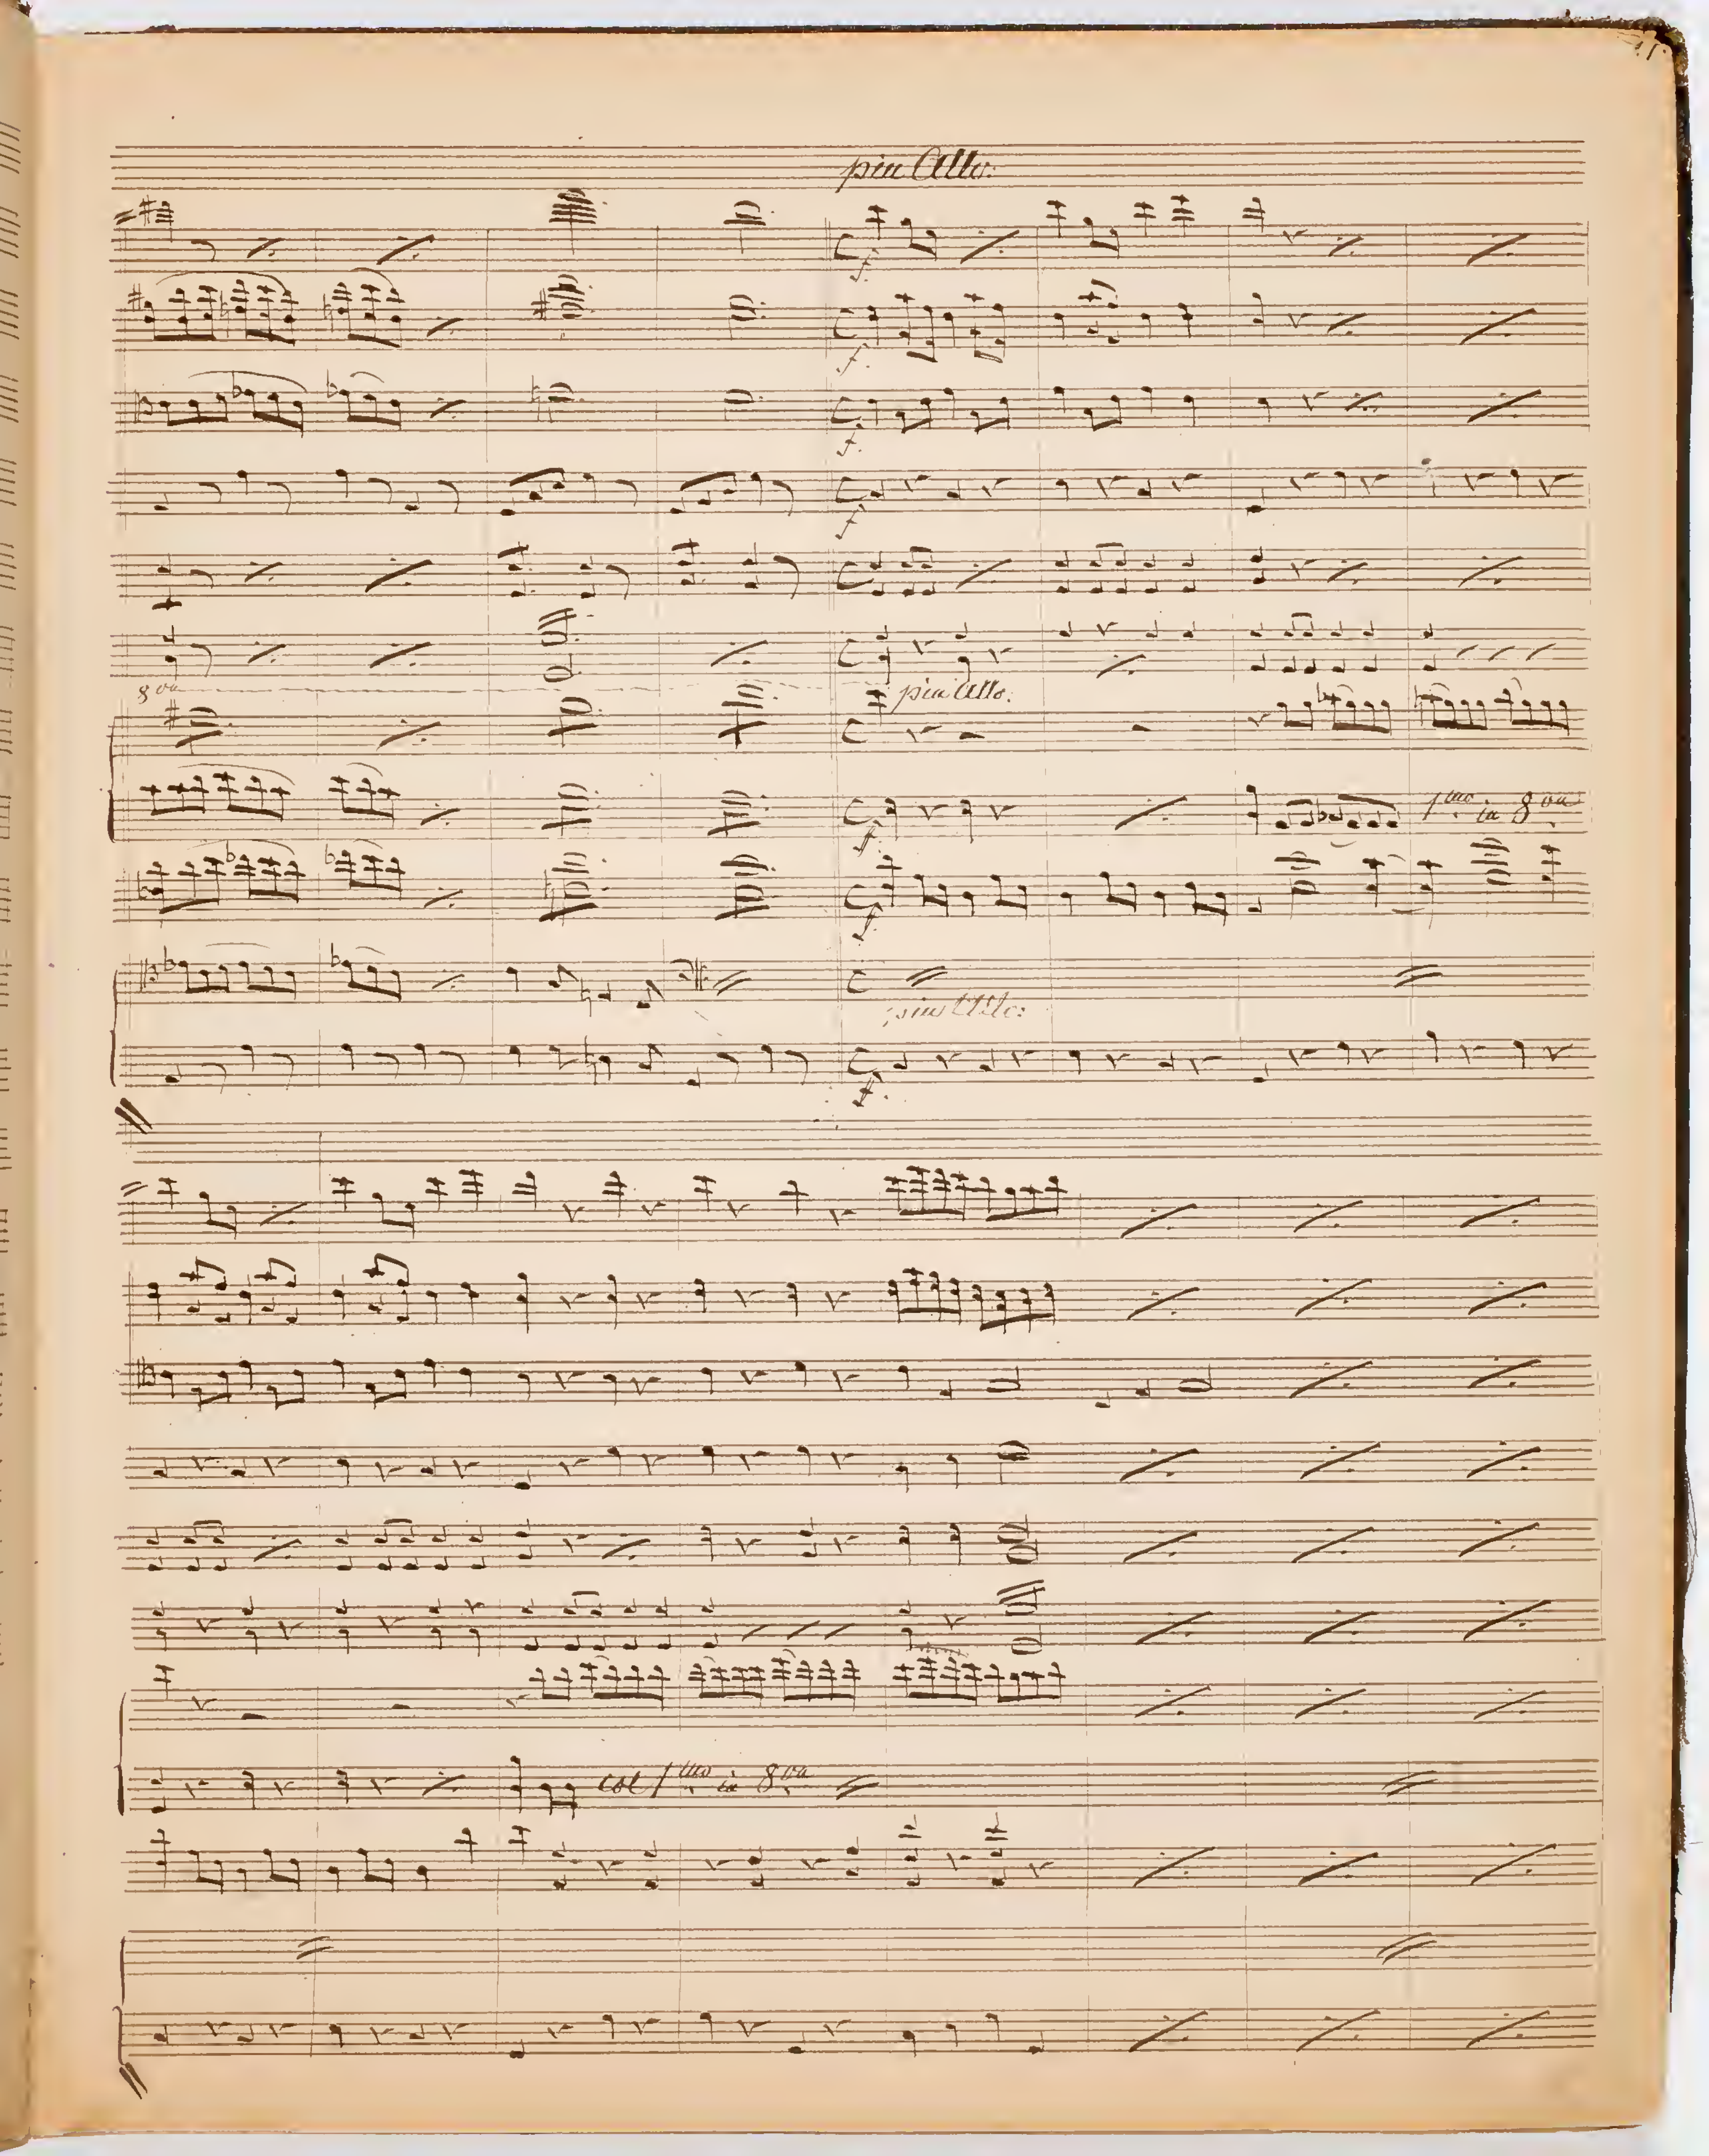 piu Allo:
f.
f.
f.
f
8va
piu Allo:
f.
1mo in 8va
f.
piu Allo:
f.
col 1mo in 8va